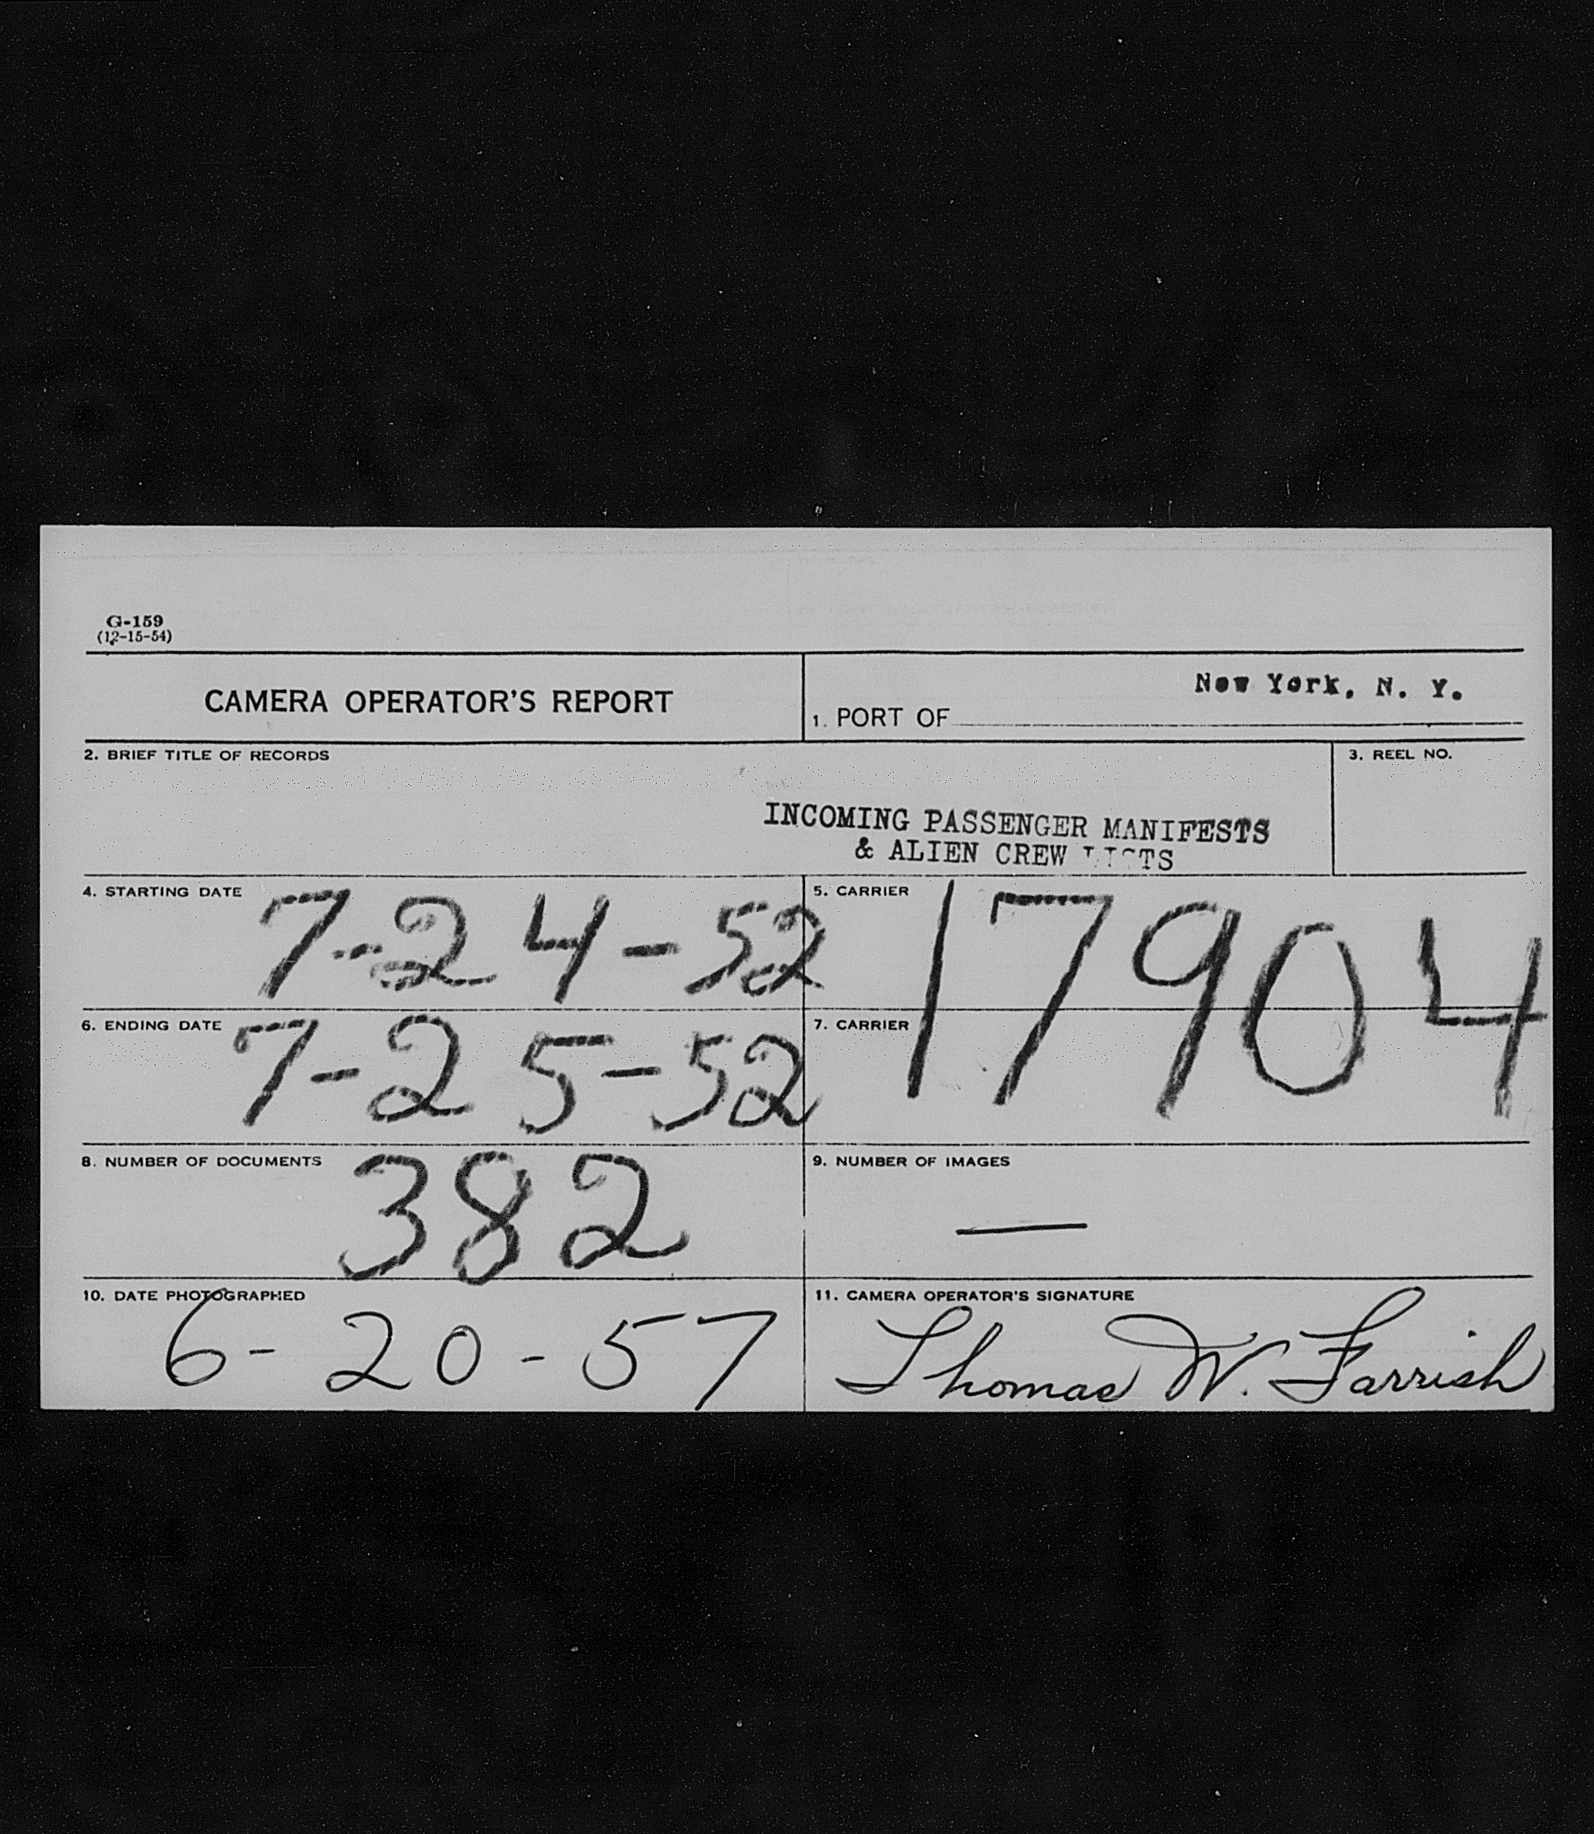 G-159
(12-15-54)
CAMERA OPERATOR'S REPORT
1. PORT OF New York, N. Y.
2. BRIEF TITLE OF RECORDS
3. REEL NO.
INCOMING PASSENGER MANIFESTS
& ALIEN CREW LISTS
4. STARTING DATE 7-24-52
5. CARRIER 17904
6. ENDING DATE 7-25-52
7. CARRIER
8. NUMBER OF DOCUMENTS 382
9. NUMBER OF IMAGES —
10. DATE PHOTOGRAPHED 6-20-57
11. CAMERA OPERATOR'S SIGNATURE Thomas W. Farrish